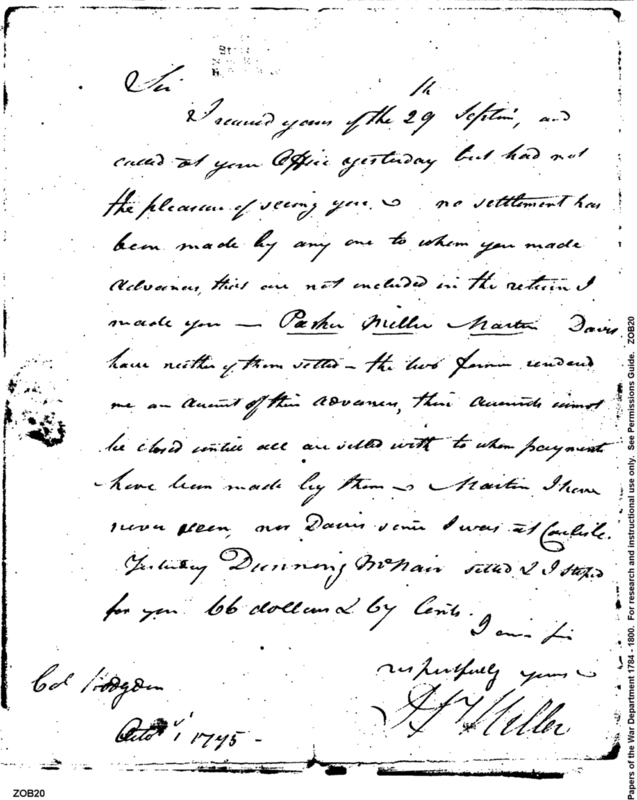 Sir
I received yours of the 29th Septem, and
called at your Office yesterday but had not
the pleasure of seeing you. no settlement has
been made by any one to whom you made
Advances, that are not included in the return I
made you — Parker Miller Martin Davis
have neither of them settled — the two former rendered
me an Account of their advances, their Accounts cannot
be closed untill all are settled with to whom payments
have been made by them — Martin I have
never seen, nor Davis since I was at Carlisle.
Yesterday Dunning McNair settled & I stoped
for you 66 dollars & 67 Cents.
I am Sir
respectfully yours
Col Hodgdon
Octor 1 1795 -
Papers of the War Department 1784 - 1800. For research and instructional use only. See Permissions Guide. ZOB20
ZOB20